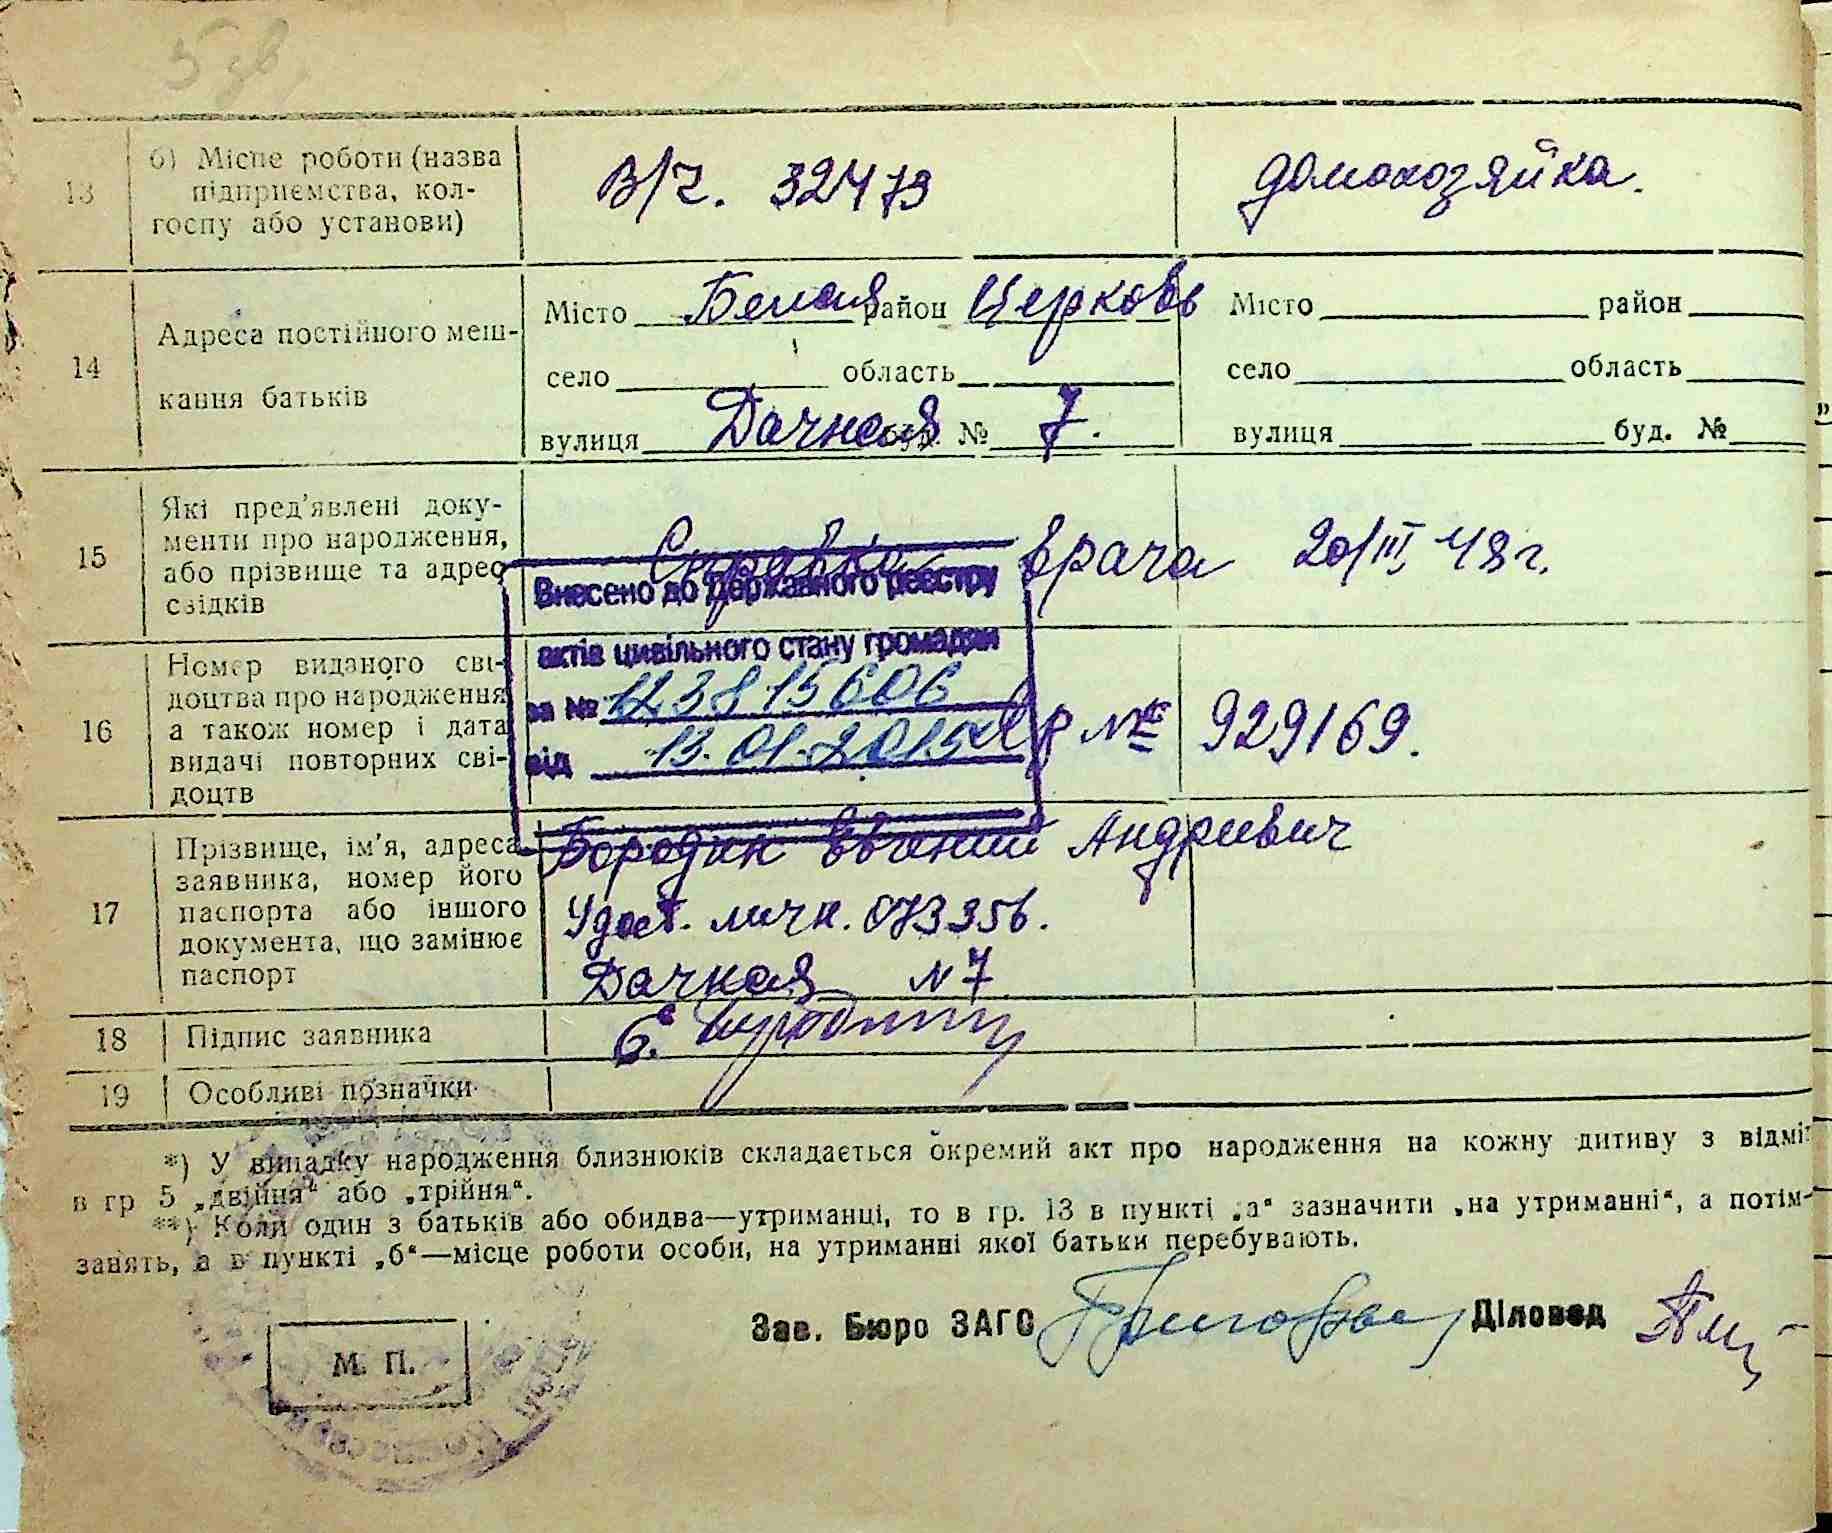 13 б) Місце роботи (назва
підприємства, кол-
госпу або установи)
В/ч. 32473
домохозяйка.
14 Адреса постійного меш-
кання батьків
Місто Белая район Церковь
село область
вулиця Дачная буд. № 7.
Місто район
село область
вулиця буд. №
15 Які пред'явлені доку-
менти про народження,
або прізвище та адрес
свідків
Справка врача 20/III 48 г.
Внесено до Державного реєстру
актів цивільного стану громадян
за № 123815606
від 13.01.2015
16 Номер виданого сві-
доцтва про народження
а також номер і дата
видачі повторних сві-
доцтв
№ 929169.
17 Прізвище, ім'я, адреса
заявника, номер його
паспорта або іншого
документа, що замінює
паспорт
Бородин Евгений Андреевич
Удост. личн. 073356.
Дачная № 7
18 Підпис заявника
19 Особливі позначки
*) У випадку народження близнюків складається окремий акт про народження на кожну дитину з відмі
в гр 5 „двійня“ або „трійня“.
**) Коли один з батьків або обидва—утриманці, то в гр. 13 в пункті „а“ зазначити „на утриманні“, а потім
занять, а в пункті „б“—місце роботи особи, на утриманні якої батьки перебувають.
Зав. Бюро ЗАГС Діловод
М. П.